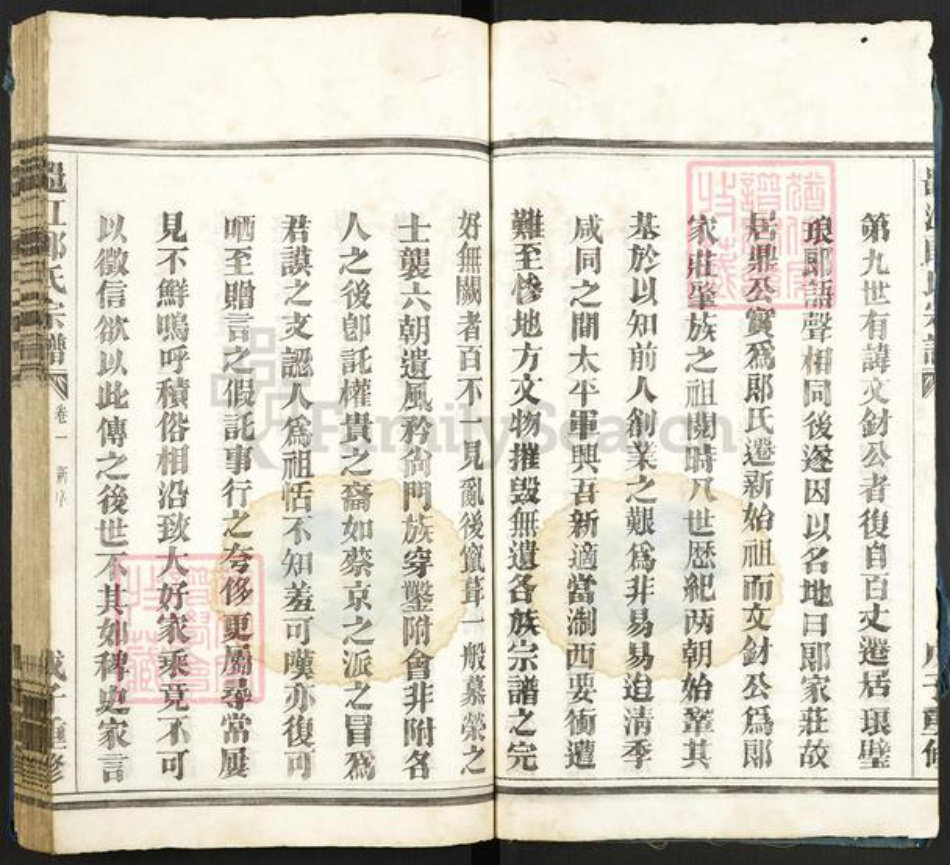 第九世有諱文財公者復自百丈遷居琅璧
琅郎語聲相同後遂因以名地曰郎家莊故
居鼎公實爲郎氏遷新始祖而文財公爲郎
家莊肇族之祖閱時八世歷紀两朝始肇其
基於以知前人創業之艱爲非易易迨清季
咸同之間太平軍興吾新適當浙西要衝遭
難至慘地方文物摧毀無遺各族宗譜之完
好無闕者百不一見亂後寬葺一般慕榮之
士襲六朝遺風矜尙門族穿鑿附會非附名
人之後卽託權貴之裔如蔡京之派之冒爲
君謨之支認人爲祖恬不知羞可嘆亦復可
哂至贈言之假託事行之夸侈更屬尋常屢
見不鮮嗚呼積俗相沿致大好家乘竟不可
以徵信欲以此傳之後世不其如稗史家言
郎氏宗譜
卷一
新序
戊子重修
FamilySearch